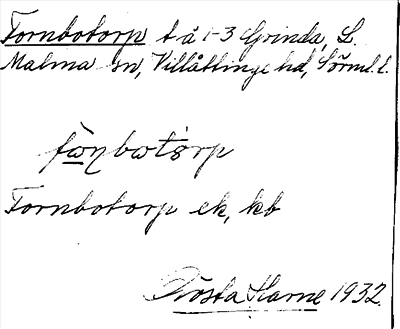 Tornbotorp t å 1-3 Grinda, L.
Malma sn, Villåttinge hd, Sörml. l.
Tornbotorp ek, kb
Gösta Harne 1932.